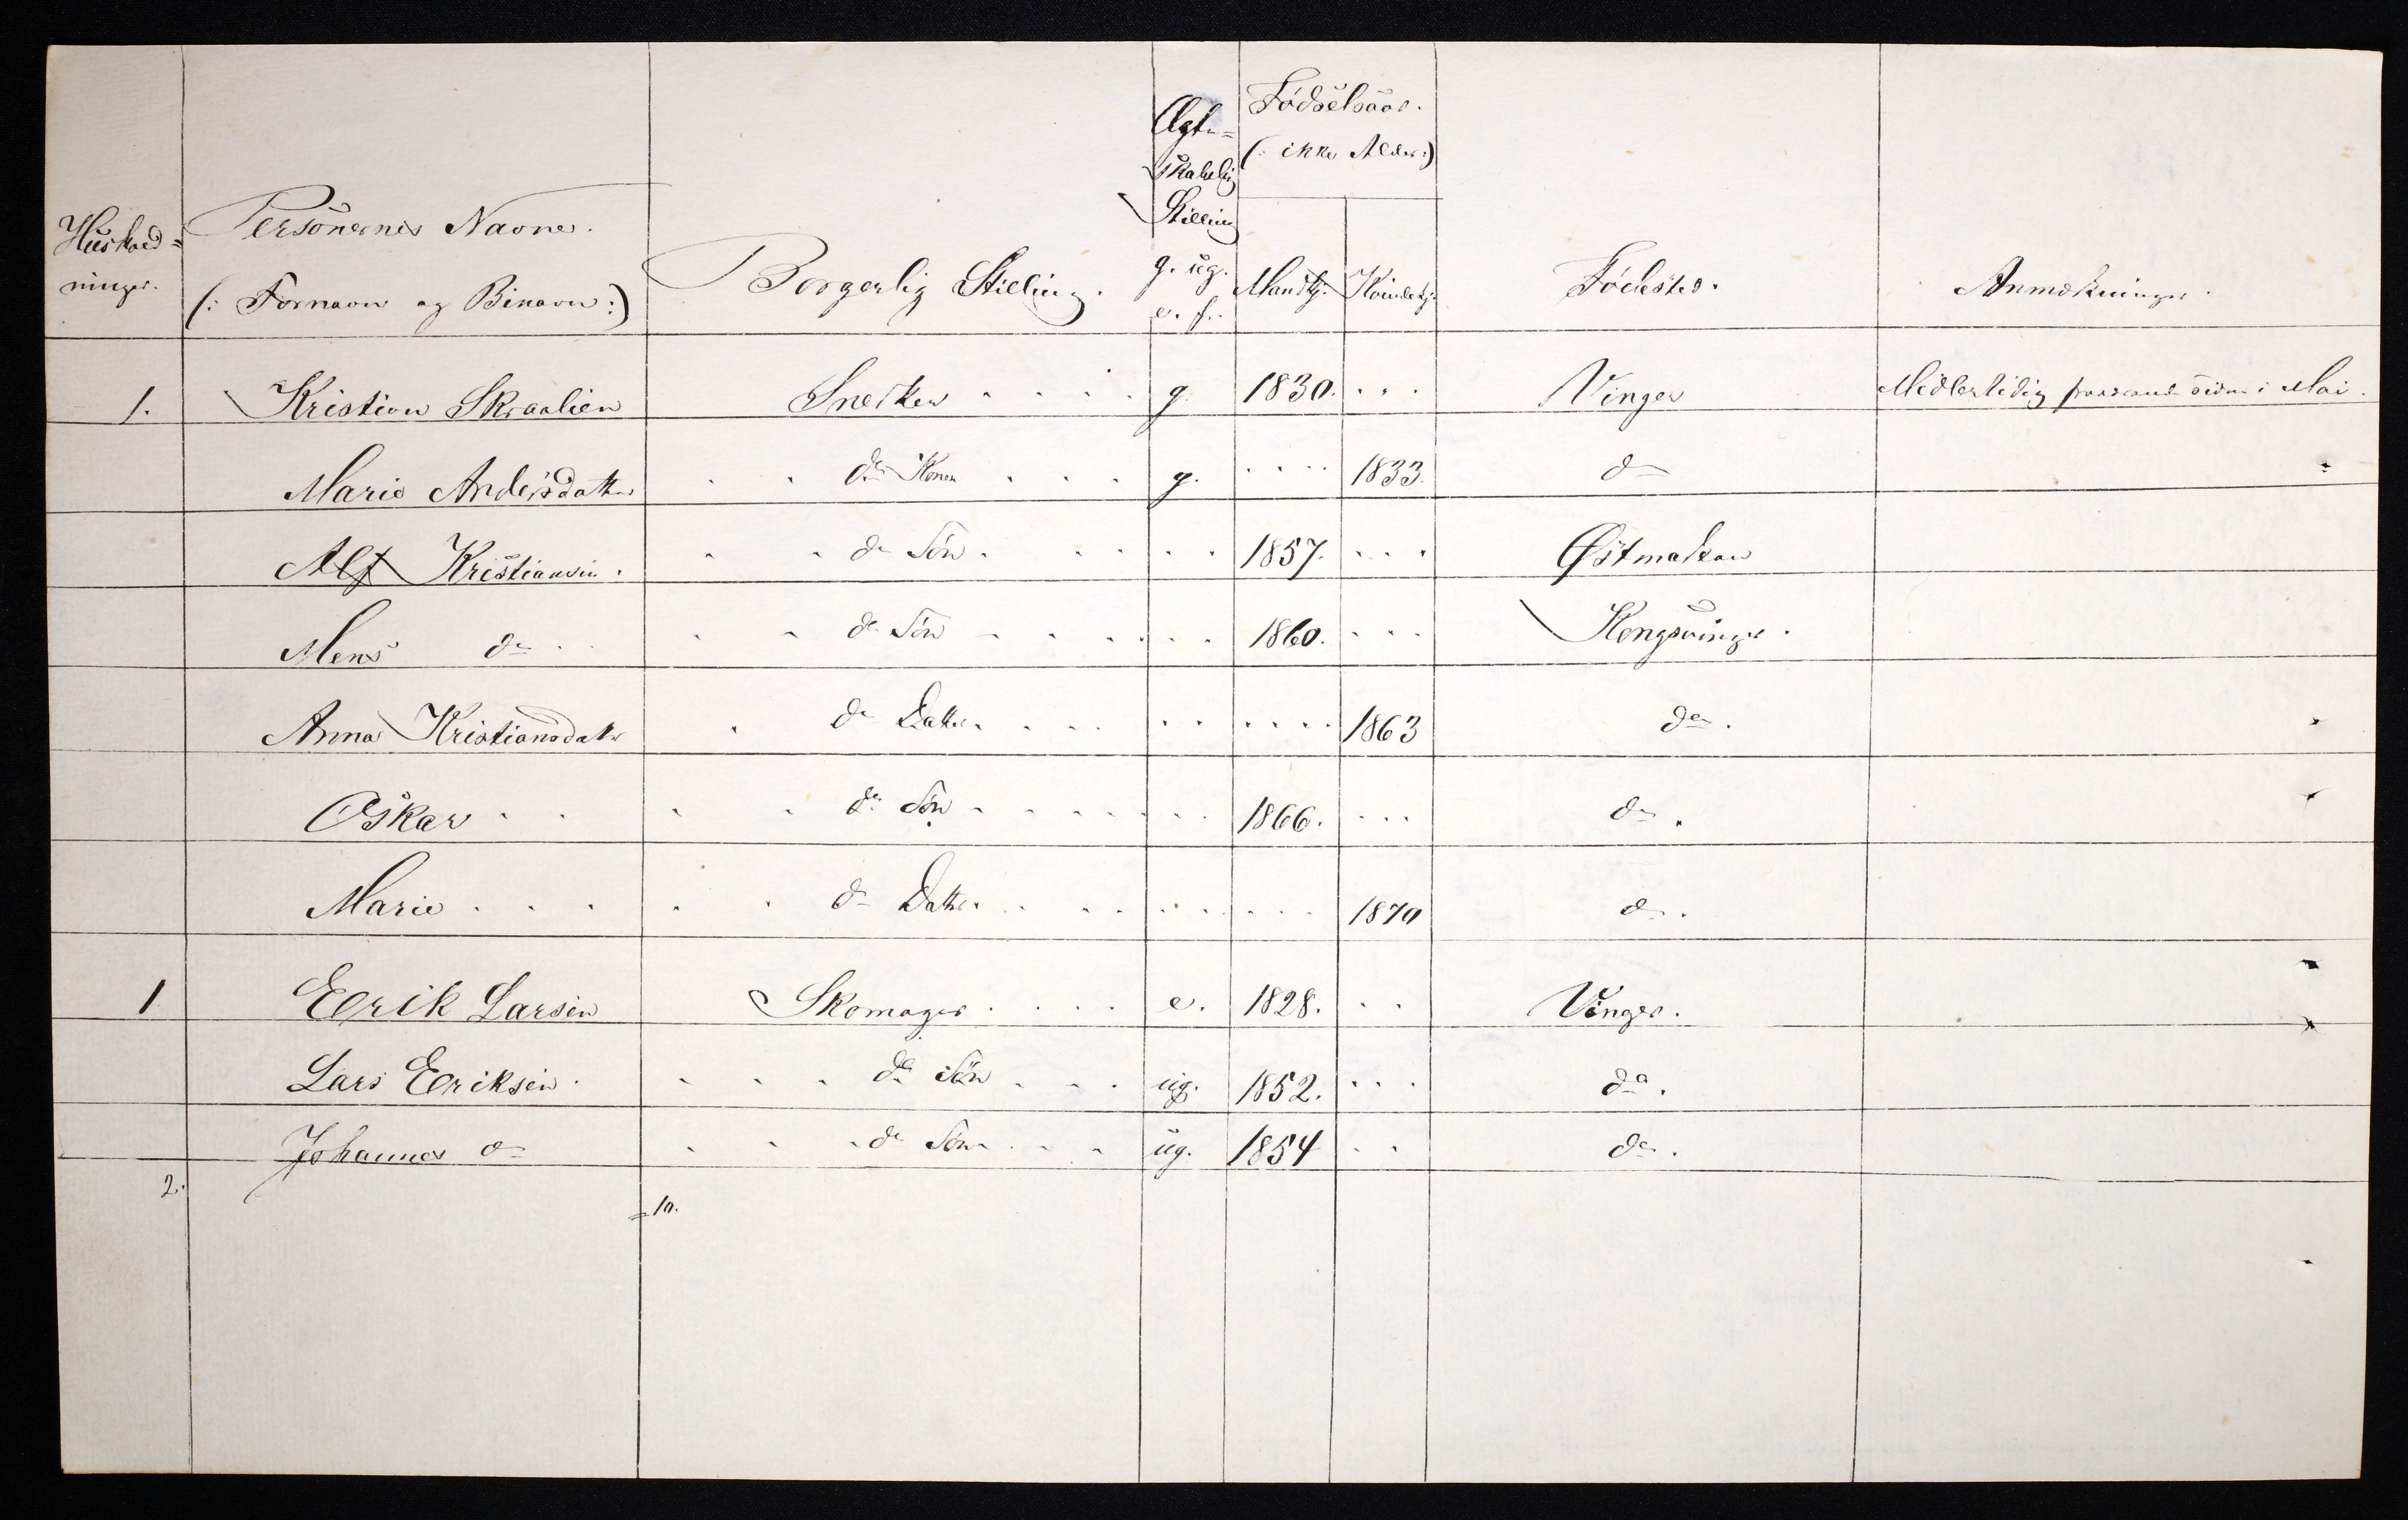 Hushold=
ninger.
Personernes Navne.
(: Fornavn og Binavn:)
Borgerlig Stilling.
Ægte=
skabelig
Stilling
g. ug.
e. f.
Födselsaar.
(: ikke Alder:)
Mandkj. Kvindekj.
Födested.
Anmærkninger.
1. Kristian Skraalien Snedker . . . . g. 1830. . . . Vinger Midlertidig fraværende siden i Mai.
Marie Andersdatter . . ds Kone . . . g. . . . . 1833. do
Alf Kristiansen. . . ds Sön . . . . . 1857. . . . Östmarken
Mens do . . . . ds Sön . . . . . . 1860. . . . Kongsvinger.
Anna Kristiansdatr . ds Datter . . . . . . . . . 1863 do.
Oskar . . . . ds Sön . . . . . . . 1866. . . . do.
Marie . . . . . ds Datter . . . . . . . . . . 1870 do.
1 Eerik Larsen Skomager . . . . e. 1828. . . Vinger.
Lars Eeriksen. . . . ds Sön . . . ug. 1852. . . . do.
Johannes do . . . ds Sön . . . ug. 1854 . . do.
2. = 10.